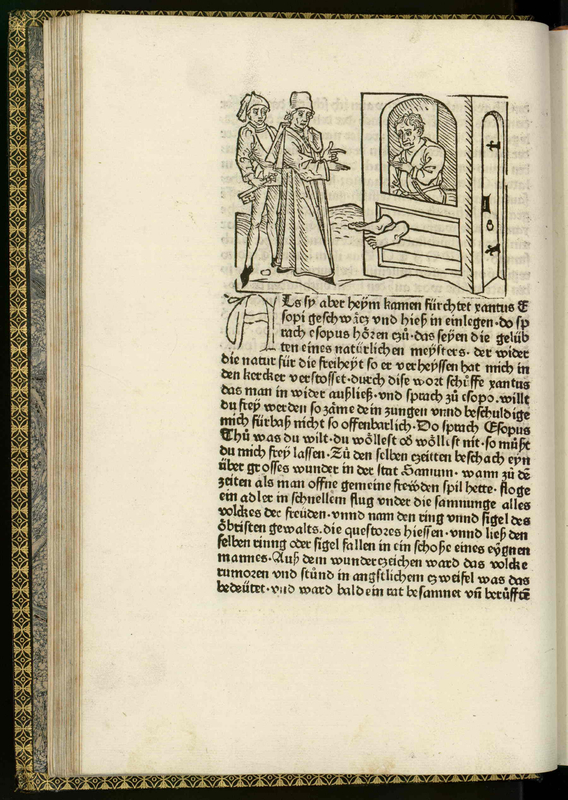 Als sy aber heym kamen fürchtet xantus E
sopi geschwäcz vnd hieß in einlegen·do sp
rach esopus hören czů·das seyen die gelüb
ten eines natürlichen meysters· der wider
die natur für die freiheyt so er verheyssen hat mich in
den kercker verstosset·durch dise wort schüffe xantus
das man in wider außließ·vnd sprach zů esopo·willt
du frey werden so zäme dein zungen vnnd beschuldige
mich fürbaß nicht so offenbarlich·Do sprach Esopus
Thů was du wilt·du wöllest oď wöllest nit·so můst
du mich frey lassen·Zů den selben czeitten beschach eyn
über grosses wunder in der stat Samum· wann zů dē
zeiten als man offne gemeine frewden spil hette· floge
ein adler in schnellem flug vnder die samnunge alles
volckes der freüden·vnnd nam den ring vnnd sigel des
öbristen gewalts·die questores hiessen·vnnd ließ den
selben rinng oder sigel fallen in ein schoße eines eygnen
mannes·Auß dem wunderczeichen ward das volcke
rumoren vnd stůnd in angstlichem czweifel was das
bedeütet·vnd ward bald ein rat besamnet vñ berůfftē